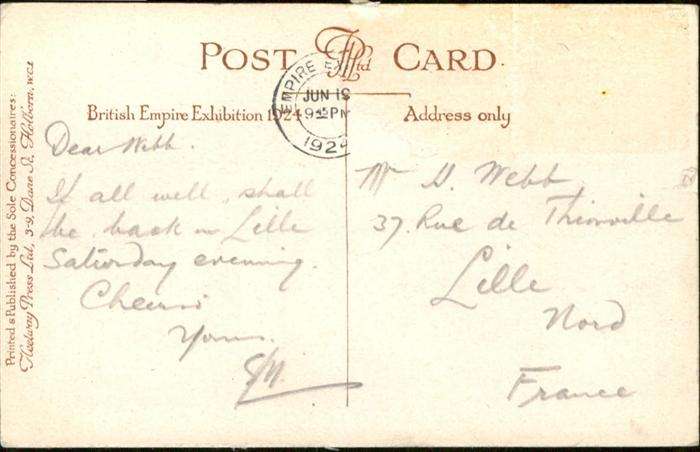 POST CARD
FPLtd
British Empire Exhibition 1924
Address only
EMPIRE EX
JUN 19
9 PM
1924
Printed & Published by the Sole Concessionaires:
Fleetway Press Ltd, 3-9, Dane St, Holborn, WC1
Dear Webb.
If all well, shall
be back in Lille
Saturday evening.
Cheerio
Yours.
Mr H. Webb
37. Rue de Thionville
Lille
Nord
France